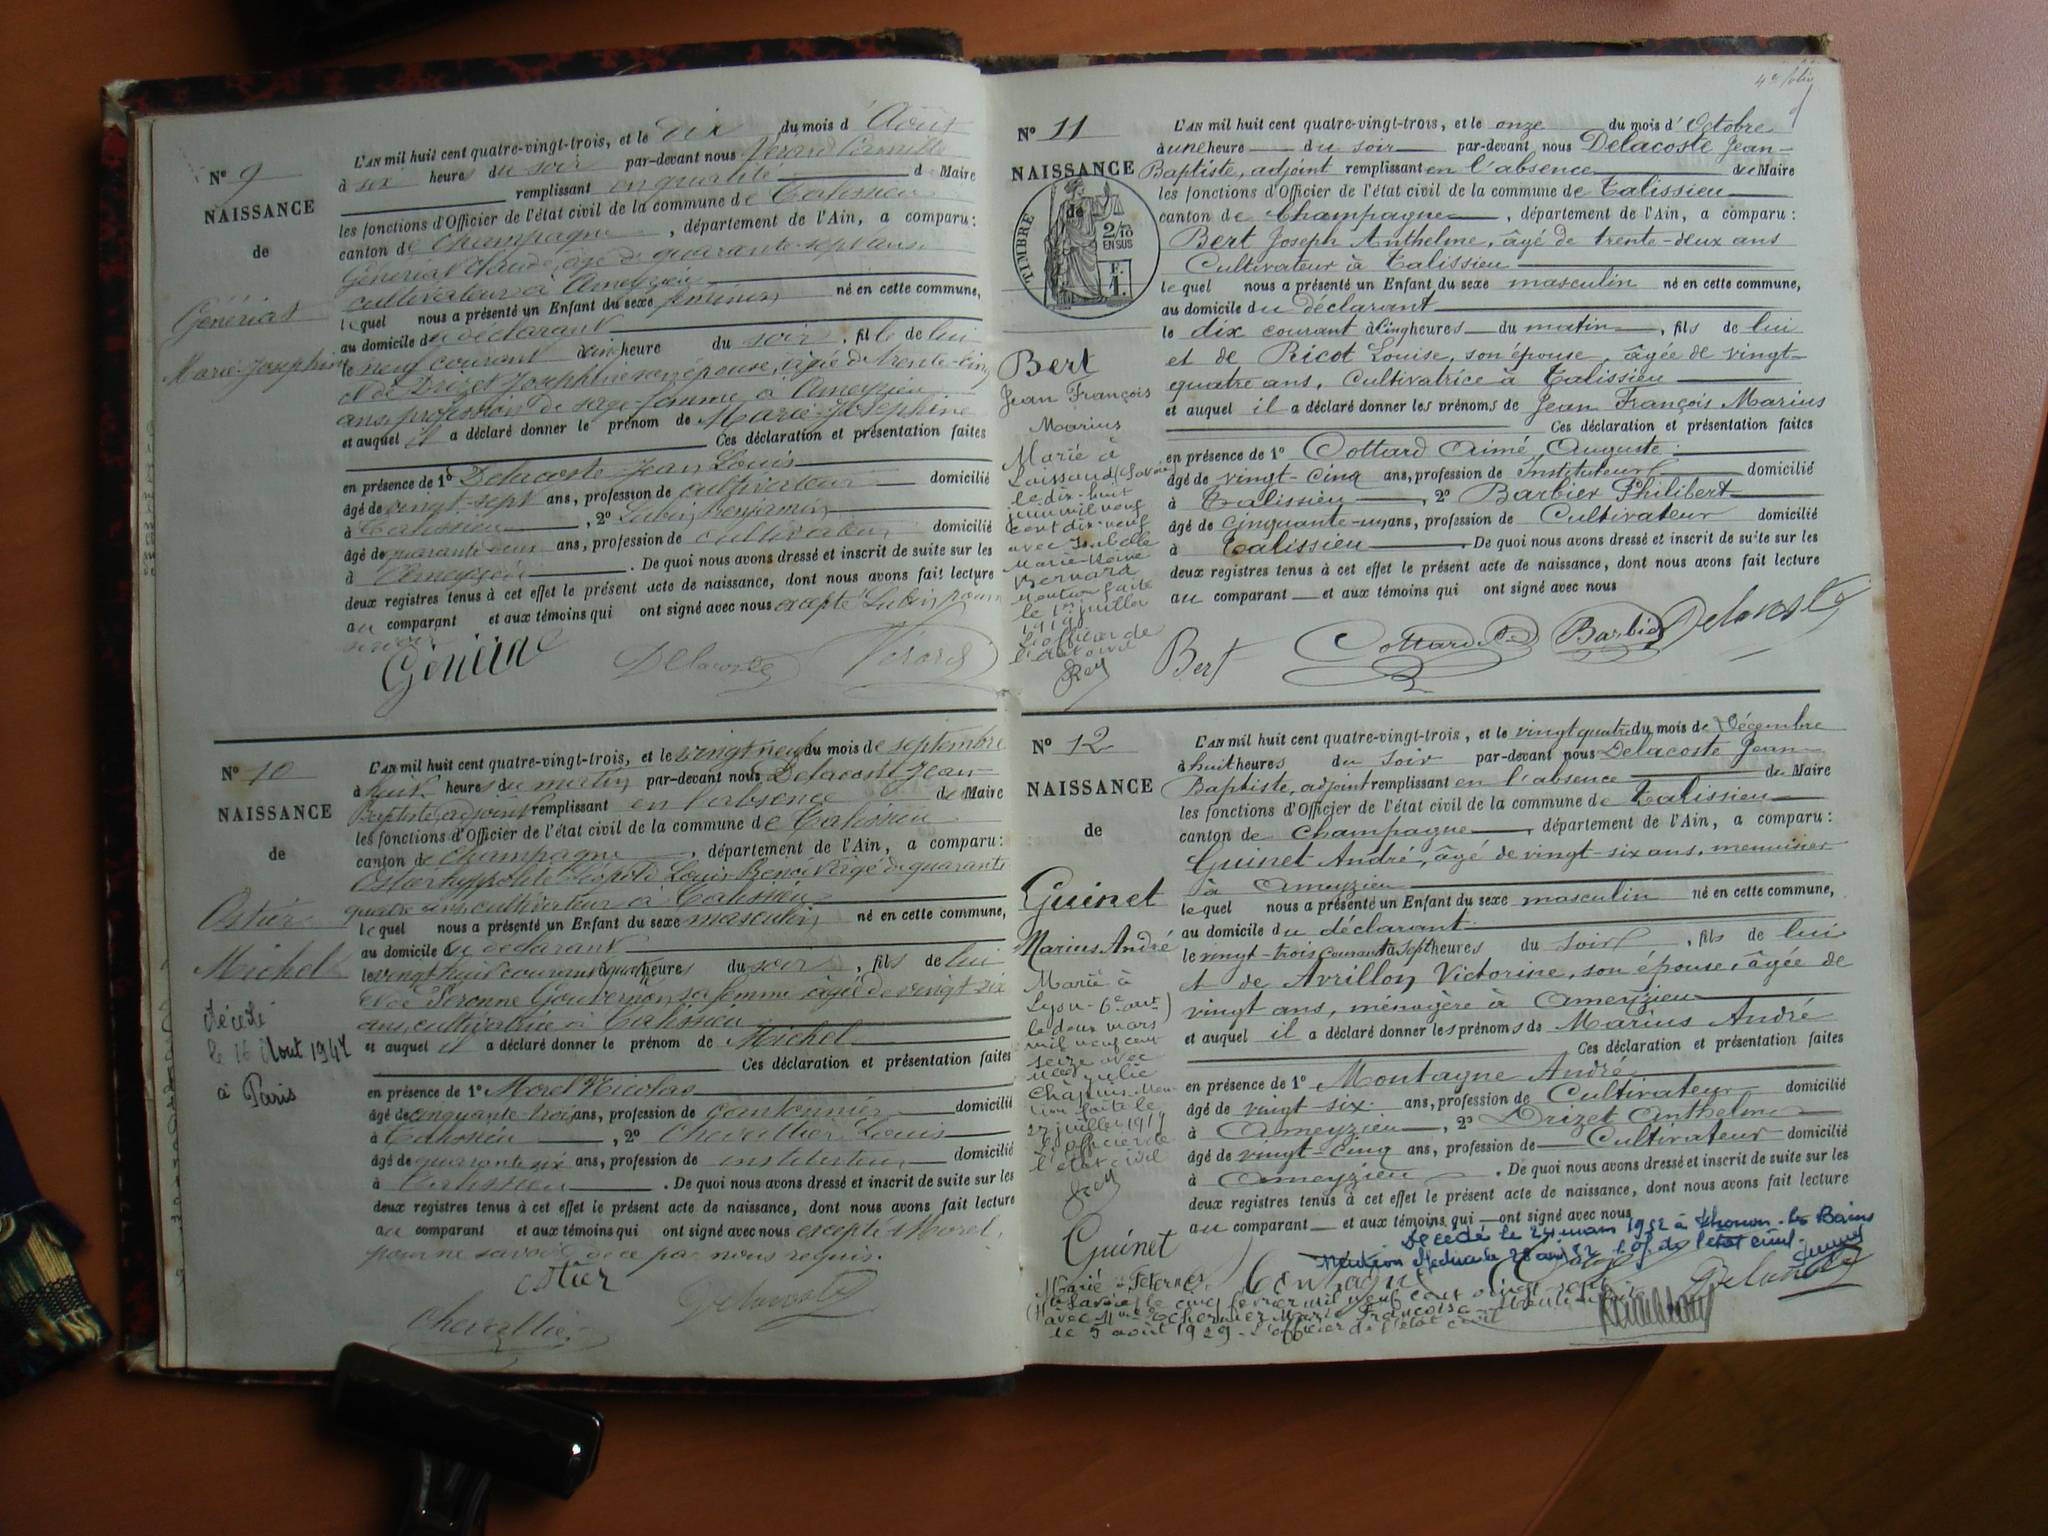 Nº 9
NAISSANCE
de
Générial
Marie-Joséphine
L'AN mil huit cent quatre-vingt-trois, et le dix du mois d'Août
à six heures du soir par-devant nous Vérard Camille
remplissant en qualité de Maire
les fonctions d'Officier de l'état civil de la commune de Talissieu
canton de Champagne, département de l'Ain, a comparu:
Générial Claude, âgé de quarante-sept ans
cultivateur à Ameyzieu
lequel nous a présenté un Enfant du sexe féminin né en cette commune,
au domicile du déclarant
le neuf courant à heure du soir, fille de lui
et de Drizet Joséphine son épouse, âgée de trente-cinq
ans, profession de sage-femme à Ameyzieu
et auquel il a déclaré donner le prénom de Marie-Joséphine
Ces déclaration et présentation faites
en présence de 1º Delacoste Jean Louis
âgé de vingt-sept ans, profession de cultivateur domicilié
à Talissieu, 2º Lubin Benjamin
âgé de quarante-deux ans, profession de cultivateur domicilié
à Ameyzieu. De quoi nous avons dressé et inscrit de suite sur les
deux registres tenus à cet effet le présent acte de naissance, dont nous avons fait lecture
au comparant et aux témoins qui ont signé avec nous excepté Lubin pour
Générial Delacoste Vérard
Nº 10
NAISSANCE
de
Ostier
Michel
Décédé
le 16 Août 1947
à Paris
L'AN mil huit cent quatre-vingt-trois, et le vingt neuf du mois de septembre
à huit heures du matin par-devant nous Delacoste Jean-
Baptiste adjoint remplissant en l'absence de Maire
les fonctions d'Officier de l'état civil de la commune de Talissieu
canton de Champagne, département de l'Ain, a comparu:
Ostier hyppolite Léopold Louis Benoit âgé de quarante
quatre ans cultivateur à Talissieu
lequel nous a présenté un Enfant du sexe masculin né en cette commune,
au domicile du déclarant
le vingt huit courant à quatre heures du soir, fils de lui
et de Péronne Gouvernon, sa femme âgée de vingt six
ans, cultivatrice à Talissieu
et auquel il a déclaré donner le prénom de Michel
Ces déclaration et présentation faites
en présence de 1º Morel Nicolas
âgé de cinquante-trois ans, profession de cantonnier domicilié
à Talissieu, 2º Chevallier Louis
âgé de quarante six ans, profession de instituteur domicilié
à Talissieu. De quoi nous avons dressé et inscrit de suite sur les
deux registres tenus à cet effet le présent acte de naissance, dont nous avons fait lecture
au comparant et aux témoins qui ont signé avec nous excepté Morel
pour ne savoir de ce par nous requis.
Ostier
Chevallier Delacoste
4e folio
Nº 11
NAISSANCE
de
TIMBRE
2/10
EN SUS
F.
1.
Bert
Jean François
Marius
Marié à
Laissaud (Savoie)
le dix-huit
juin mil neuf
cent dix-neuf
avec Isabelle
Marie-Reine
Bernard
Mention faite
le 1er juillet
1919
L'officier de
l'état civil
Rey
L'AN mil huit cent quatre-vingt-trois, et le onze du mois d'Octobre
à une heure du soir par-devant nous Delacoste Jean-
Baptiste, adjoint remplissant en l'absence de Maire
les fonctions d'Officier de l'état civil de la commune de Talissieu
canton de Champagne, département de l'Ain, a comparu:
Bert Joseph Anthelme, âgé de trente-deux ans
Cultivateur à Talissieu
lequel nous a présenté un Enfant du sexe masculin né en cette commune,
au domicile du déclarant
le dix courant à Cinq heures du matin, fils de lui
et de Ricot Louise, son épouse, âgée de vingt-
quatre ans, Cultivatrice à Talissieu
et auquel il a déclaré donner les prénoms de Jean François Marius
Ces déclaration et présentation faites
en présence de 1º Cottard Aimé Auguste
âgé de vingt-cinq ans, profession de Instituteur domicilié
à Talissieu, 2º Barbier Philibert
âgé de cinquante-un ans, profession de Cultivateur domicilié
à Talissieu. De quoi nous avons dressé et inscrit de suite sur les
deux registres tenus à cet effet le présent acte de naissance, dont nous avons fait lecture
au comparant et aux témoins qui ont signé avec nous
Bert Cottard Barbier Delacoste
Nº 12
NAISSANCE
de
Guinet
Marius André
Marié à
Lyon-6e arrt)
le deux mars
mil neuf cent
seize avec
Julie
Chapuis. Men-
tion faite le
27 juillet 1917
L'officier de
l'état civil
Rey
L'AN mil huit cent quatre-vingt-trois, et le vingt quatre du mois de Décembre
à huit heures du soir par-devant nous Delacoste Jean
Baptiste, adjoint remplissant en l'absence de Maire
les fonctions d'Officier de l'état civil de la commune de Talissieu
canton de Champagne, département de l'Ain, a comparu:
Guinet André, âgé de vingt-six ans, menuisier
à Ameyzieu
lequel nous a présenté un Enfant du sexe masculin né en cette commune,
au domicile du déclarant
le vingt-trois courant à sept heures du soir, fils de lui
et de Avrillon Victorine, son épouse, âgée de
vingt ans, ménagère à Ameyzieu
et auquel il a déclaré donner les prénoms de Marius André
Ces déclaration et présentation faites
en présence de 1º Montagne André
âgé de vingt-six ans, profession de Cultivateur domicilié
à Ameyzieu, 2º Drizet Anthelme
âgé de vingt-cinq ans, profession de Cultivateur domicilié
à Ameyzieu. De quoi nous avons dressé et inscrit de suite sur les
deux registres tenus à cet effet le présent acte de naissance, dont nous avons fait lecture
au comparant et aux témoins qui ont signé avec nous
Décédé le 24 mars 1952 à Thonon-les Bains
Mention 28 avril 52 l'Off. de l'état civil
Guinet Montagne Delacoste
Marié à Féternes
(Hte Savoie) le cinq février mil neuf cent vingt
avec Marie Françoise
le 5 août 1929 - L'officier de l'état civil